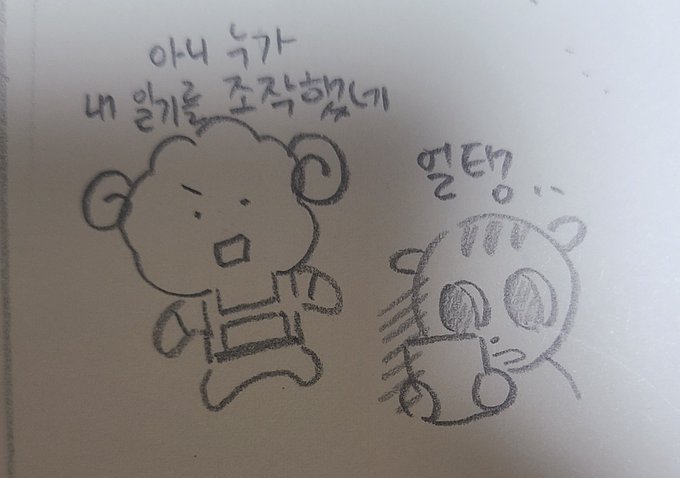 아니 누가
내 일기를 조작했네
얼탱..